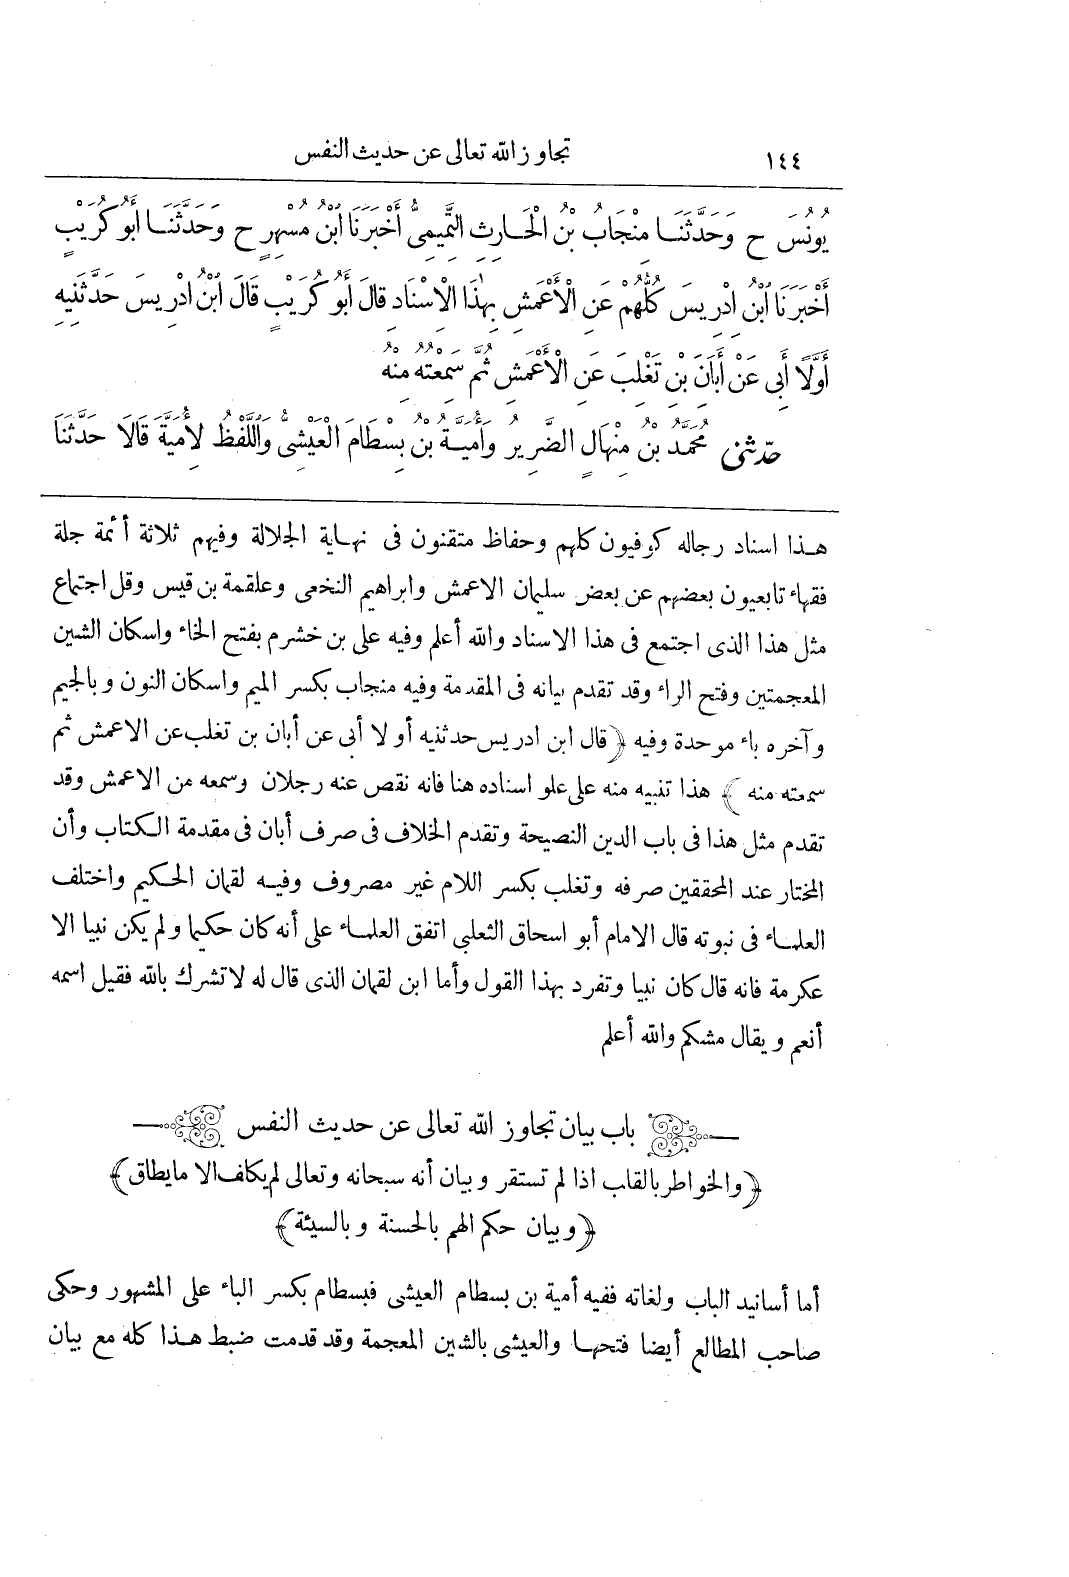 ١٤٤ تجاوز الله تعالى عن حديث النفس
يُونُسَ ح وَحَدَّثَنَا مِنْجَابُ بْنُ الْحَارِثِ التَّمِيمِىُّ أَخْبَرَنَا ابْنُ مُسْهِرٍ ح وَحَدَّثَنَا أَبُو كُرَيْبٍ
أَخْبَرَنَا ابْنُ ادْرِيسَ كُلُّهُمْ عَنِ الْأَعْمَشِ بِهٰذَا الْاسْنَادِ قَالَ أَبُو كُرَيْبٍ قَالَ ابْنُ ادْرِيسَ حَدَّثَنِيهِ
أَوَّلًا أَبِى عَنْ أَبَانَ بْنِ تَغْلِبَ عَنِ الْأَعْمَشِ ثُمَّ سَمِعْتُهُ مِنْهُ
حدّثنى مُحَمَّدُ بْنُ مِنْهَالٍ الضَّرِيرُ وَأُمَيَّةُ بْنُ بِسْطَامَ الْعَيْشِىُّ وَاللَّفْظُ لِأُمَيَّةَ قَالَا حَدَّثَنَا
هذا اسناد رجاله كوفيون كلهم وحفاظ متقنون فى نهاية الجلالة وفيهم ثلاثة أئمة جلة
فقهاء تابعيون بعضهم عن بعض سليمان الاعمش وابراهيم النخعى وعلقمة بن قيس وقل اجتماع
مثل هذا الذى اجتمع فى هذا الاسناد والله أعلم وفيه على بن خشرم بفتح الخاء واسكان الشين
المعجمتين وفتح الراء وقد تقدم بيانه فى المقدمة وفيه منجاب بكسر الميم واسكان النون وبالجيم
وآخره باء موحدة وفيه ﴿قال ابن ادريس حدثنيه أولا أبى عن أبان بن تغلب عن الاعمش ثم
سمعته منه﴾ هذا تنبيه منه على علو اسناده هنا فانه نقص عنه رجلان وسمعه من الاعمش وقد
تقدم مثل هذا فى باب الدين النصيحة وتقدم الخلاف فى صرف أبان فى مقدمة الكتاب وأن
المختار عند المحققين صرفه وتغلب بكسر اللام غير مصروف وفيه لقمان الحكيم واختلف
العلماء فى نبوته قال الامام أبو اسحاق الثعلبي اتفق العلماء على أنه كان حكيما ولم يكن نبيا الا
عكرمة فانه قال كان نبيا وتفرد بهذا القول وأما ابن لقمان الذى قال له لا تشرك بالله فقيل اسمه
أنعم ويقال مشكم والله أعلم
باب بيان تجاوز الله تعالى عن حديث النفس
﴿والخواطر بالقلب اذا لم تستقر وبيان أنه سبحانه وتعالى لم يكلف الا ما يطاق﴾
﴿وبيان حكم الهم بالحسنة وبالسيئة﴾
أما أسانيد الباب ولغاته ففيه أمية بن بسطام العيشى فبسطام بكسر الباء على المشهور وحكى
صاحب المطالع أيضا فتحها والعيشى بالشين المعجمة وقد قدمت ضبط هذا كله مع بيان